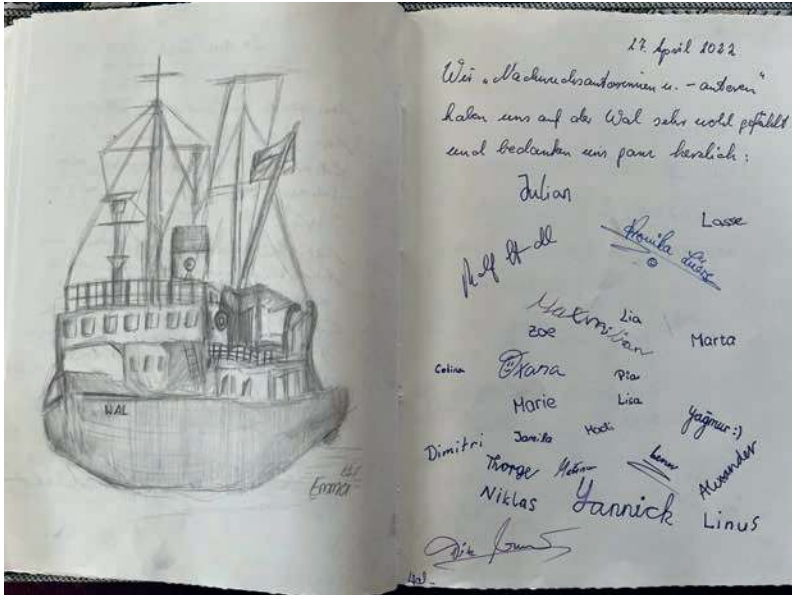 WAL
Emma
27. April 2022
Wir „Nachwuchsautorinnen u. - autoren“
haben uns auf der Wal sehr wohl gefühlt
und bedanken uns ganz herzlich:
Julian
Lasse
Lia
Maximilian
Zoe
Marta
Oxana
Pia
Marie
Lisa
Yağmur :)
Dimitri
Jamila
Thorge
Alexander
Niklas
Yannick
Linus